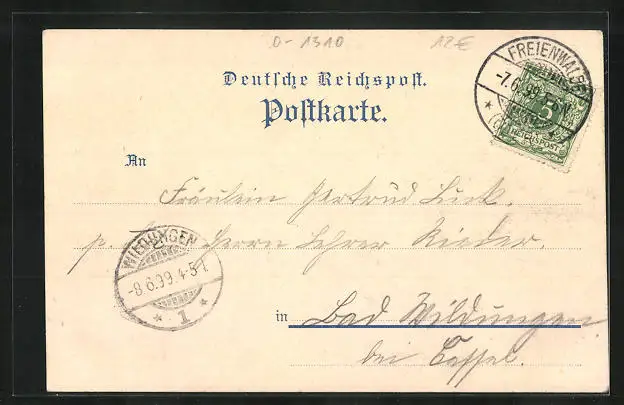 D-1310 12€
Deutsche Reichspost.
Postkarte.
FREIENWALDE
-7.6.99.
5
REICHSPOST
An
Fräulein Gertrud Luck.
p. Herrn Lehrer Rieder.
WILDUNGEN
-8.6.99.4-5N.
* 1 *
in Bad Wildungen
bei Cassel.